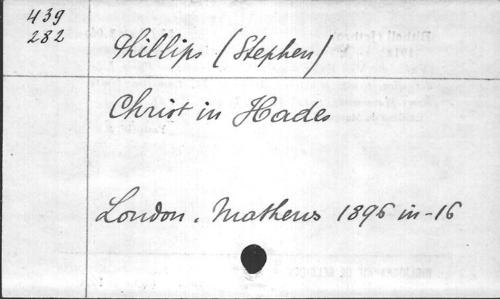 439
282
Phillips (Stephen)
Christ in Hades
London. Mathews 1896 in-16